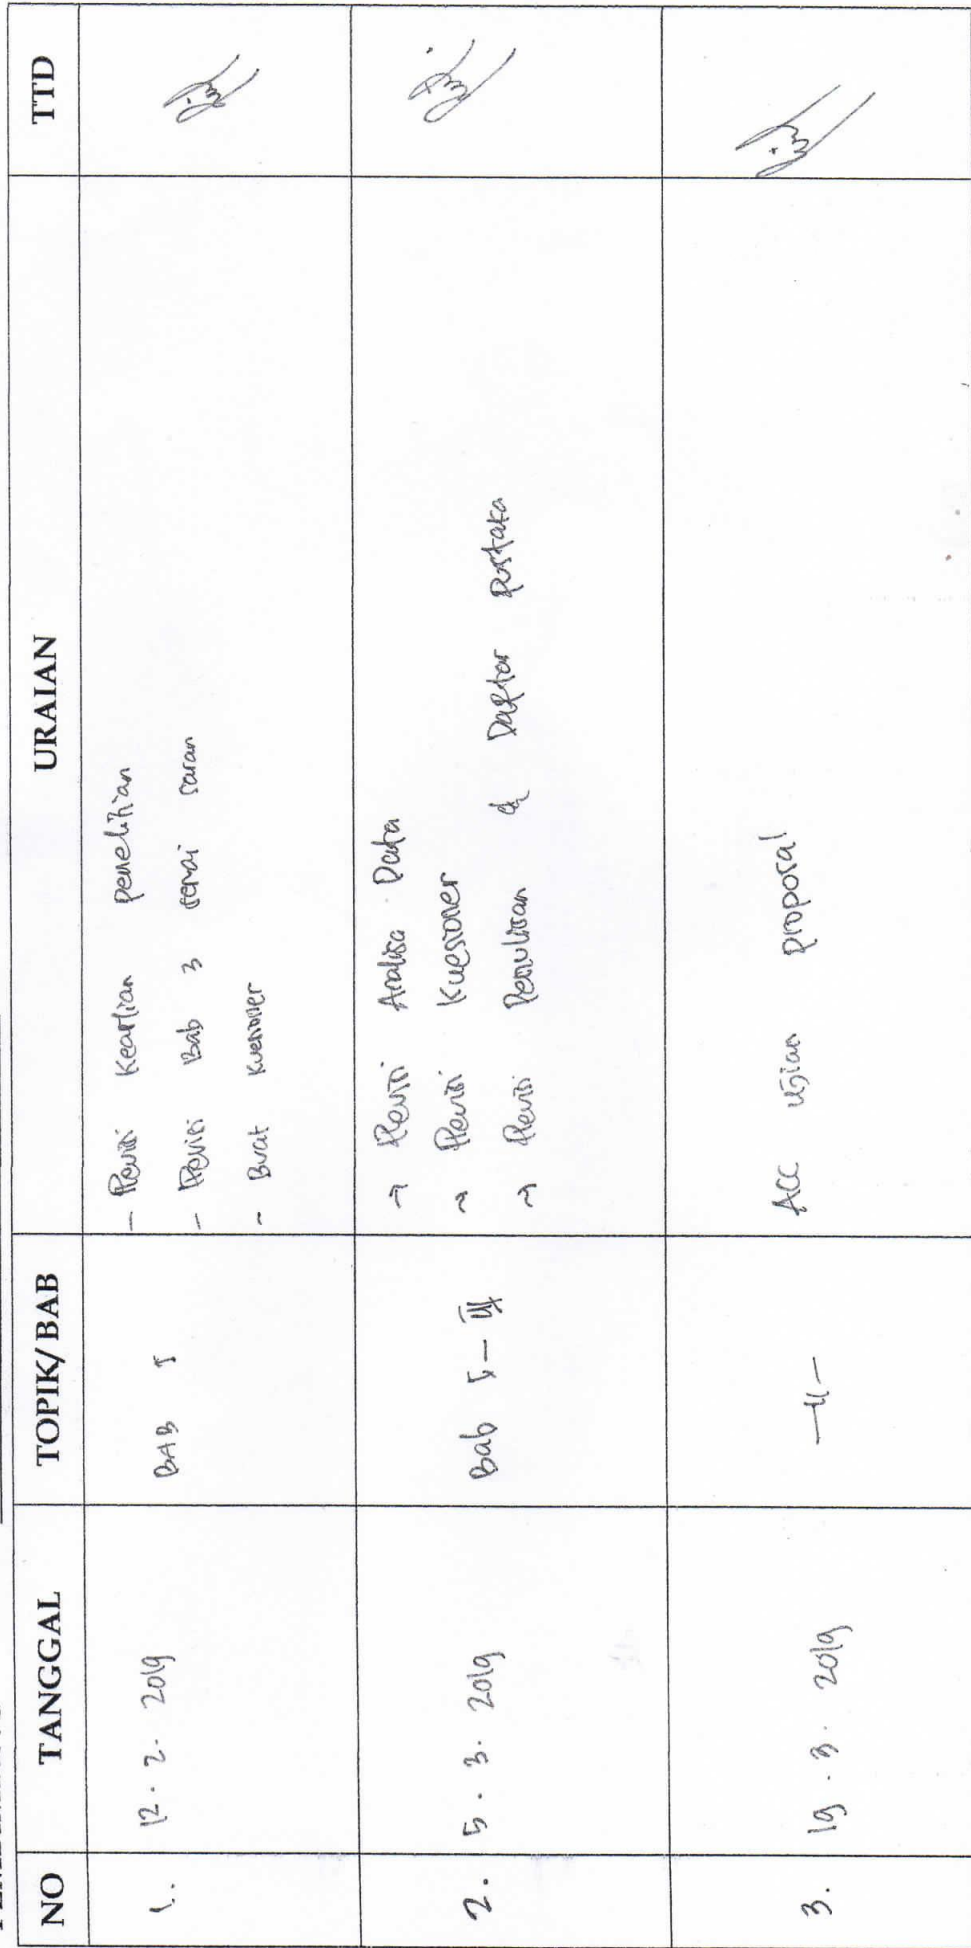 NO TANGGAL TOPIK/BAB URAIAN TTD
1. 12 . 2 . 2019 BAB I
- Revisi Keartlian penelitian
- Revisi Bab 3 sesuai saran
- Buat Kuesioner
2. 5 . 3 . 2019 Bab I - III
→ Revisi Analisa Data
→ Revisi Kuesioner
→ Revisi Penulisan & Daftar pustaka
3. 19 . 3 . 2019 —〃—
ACC Ujian proposal